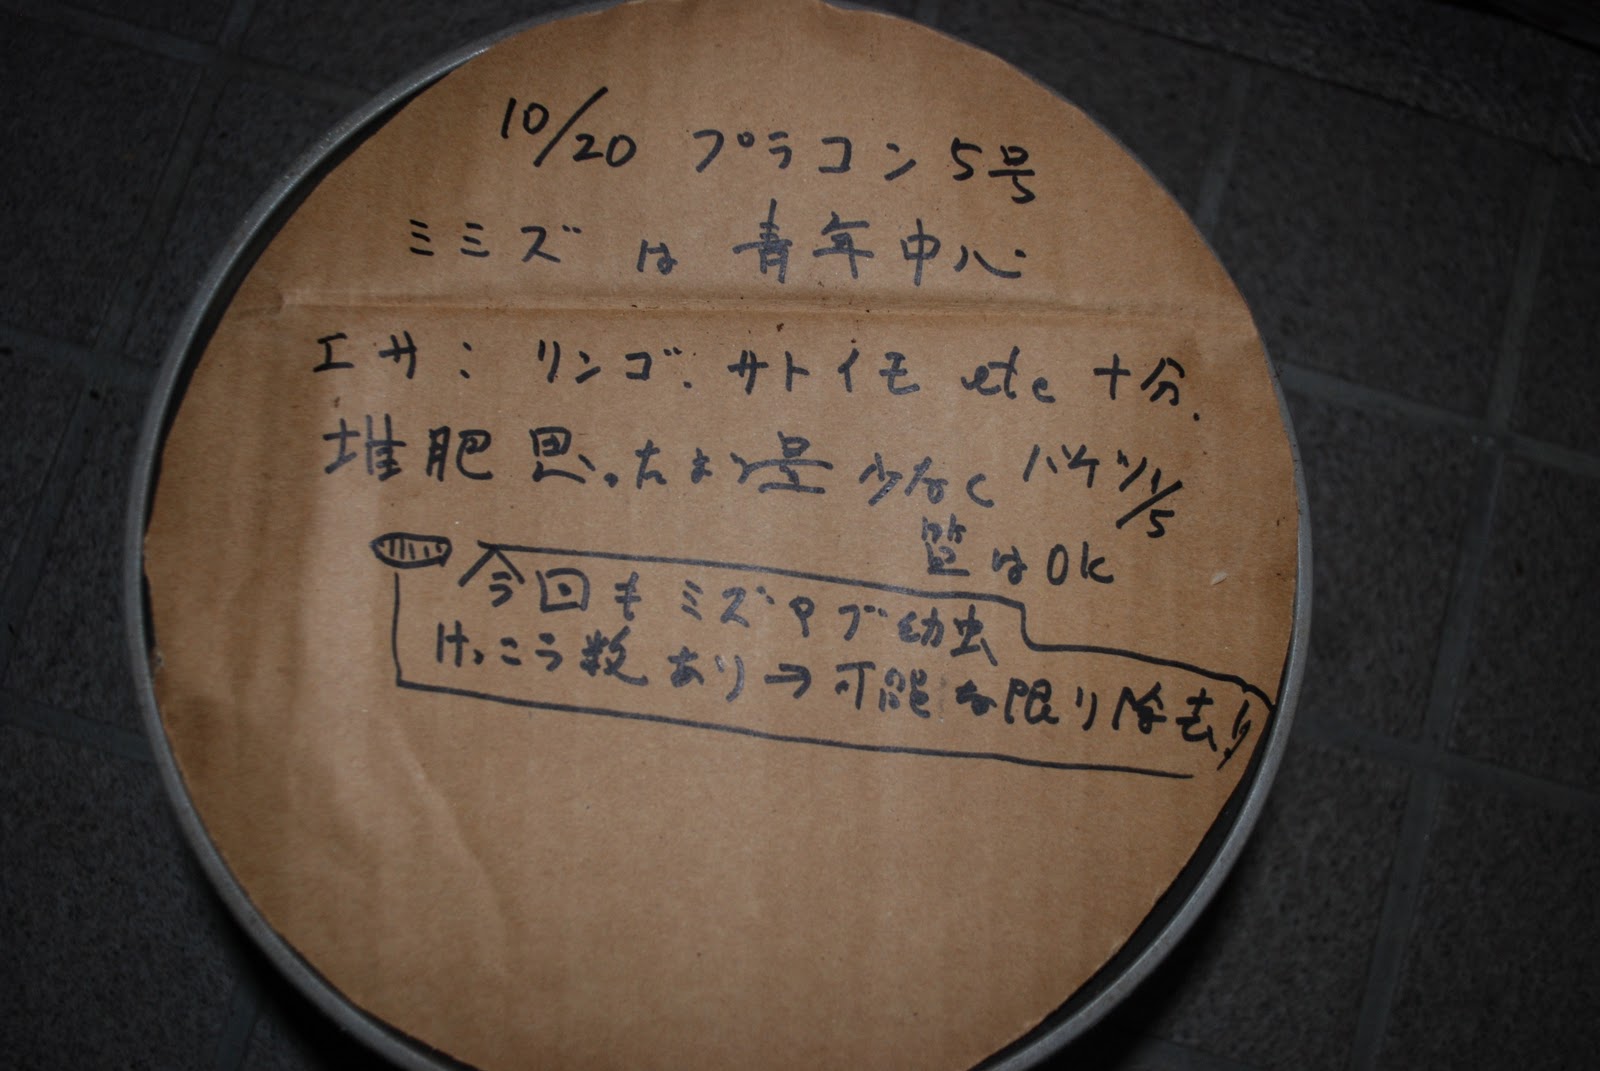 10/20 プラコン 5号
ミミズ は 青年中心
エサ: リンゴ、サトイモ etc 十分.
堆肥 思ったより量 少なく バケツ1/5
質はOK
今回も ミズアブ幼虫
けっこう数 あり→可能な限り除去